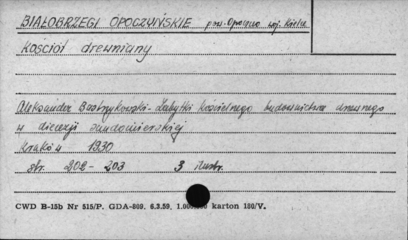 BIAŁOBRZEGI OPOCZYŃSKIE pow. Opoczno woj. Kielce
Kościół drewniany
Aleksander Bastrzykowski - Zabytki kościelnego budownictwa drewnego
w diecezji sandomierskiej
Kraków 1930
str. 202 - 203 3 ilustr.
CWD B-15b Nr 515/P. GDA-869. 6.3.59. karton 180/V.